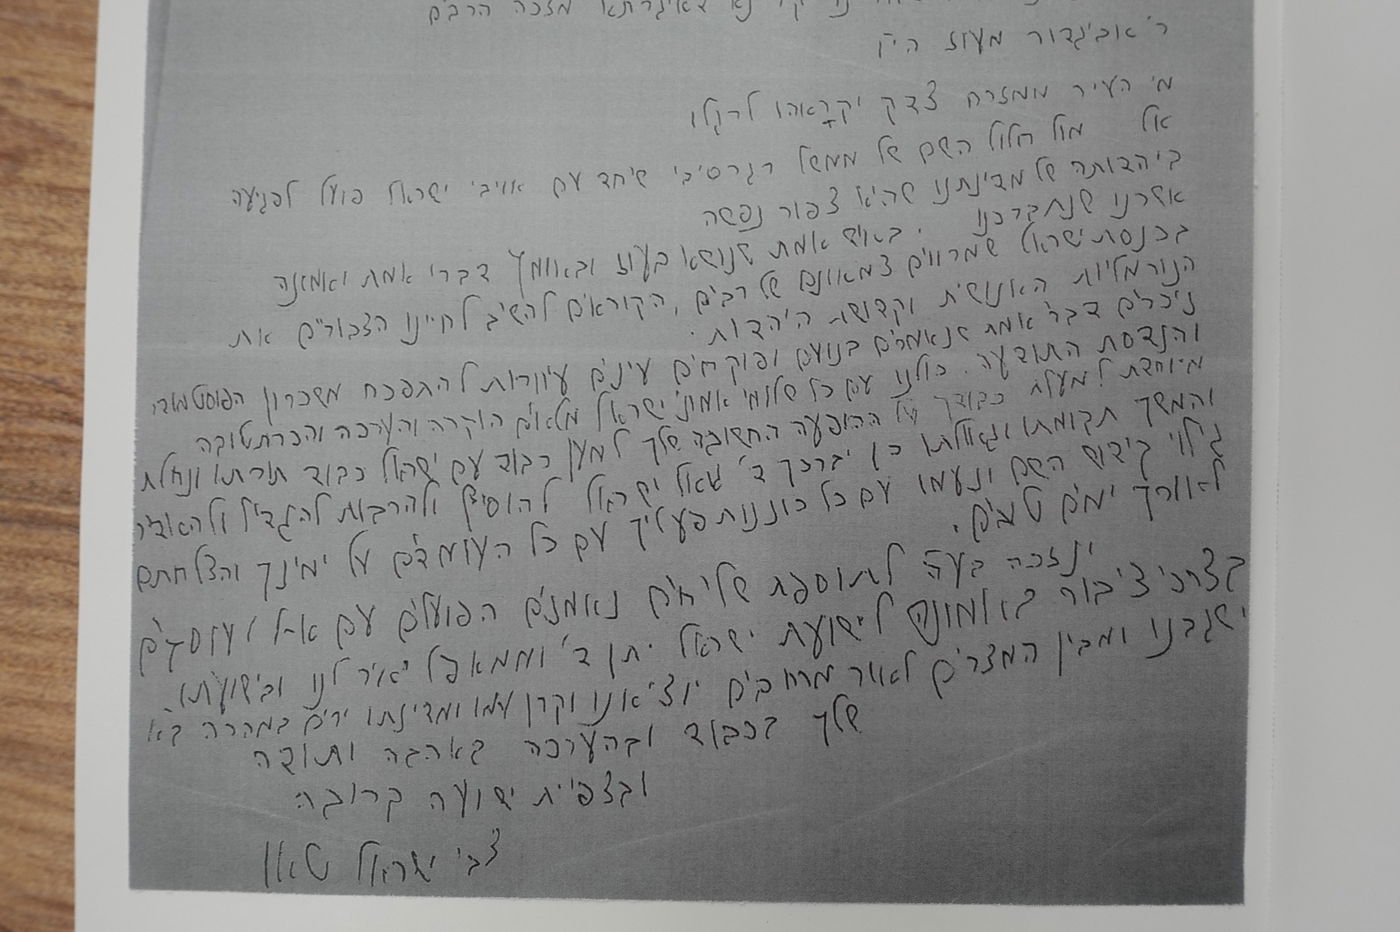 מזכה הרבים
ר' אביגדור מעוז הי"ו
מי העיר ממזרח צדק יקראהו לרגלו
אל מול חלול השם של ממשל רגרסיבי שיחד עם אויבי ישראל פועל לפגיעה
ביהדותה של מדינתנו שהיא צפור נפשה
אשרנו שנתברכנו באיש אמת שנושא בעוז ובאומץ דברי אמת ואמונה
בכנסת ישראל שמרווים צמאונם של רבים, הקוראים להשיב לחיינו הצבוריים את
הנורמליות האנושית וקדושת היהדות.
ניכרים דברי אמת שנאמרים בנועם ופוקחים עינים עיוורות להתפכח משכרון הפוסטמודרני
והנדסת התודעה. כולנו עם כל שלומי אמוני ישראל מלאים הוקרה והערכה והכרת טובה
מיוחדת למעלת כבודך על ההופעה החשובה שלך למען כבוד עם ישראל כבוד תורתו ונחלת
והמשך תקומתו וגאולתו כן יברכך ד' גואל ישראל להוסיף ולהרבות להגדיל ולהאדיר
גילוי קידוש השם ונעמו עם כל כוננות פעליך עם כל העומדים על ימינך והצלחתם
לאורך ימים טובים.
ונזכה בע"ה לתוספת שליחים נאמנים הפועלים עם א-ל ועוסקים
בצרכי ציבור באמונה לישועת ישראל יתן ד' וממאפל יאיר לנו ובישועתו
ישגבנו ומבין המצרים לאור מרחבים יוציאנו וקרן עמו ומדינתו ירים במהרה בא
שלך בכבוד ובהערכה באהבה ותודה
ובצפית ישועה קרובה
צבי ישראל טאו